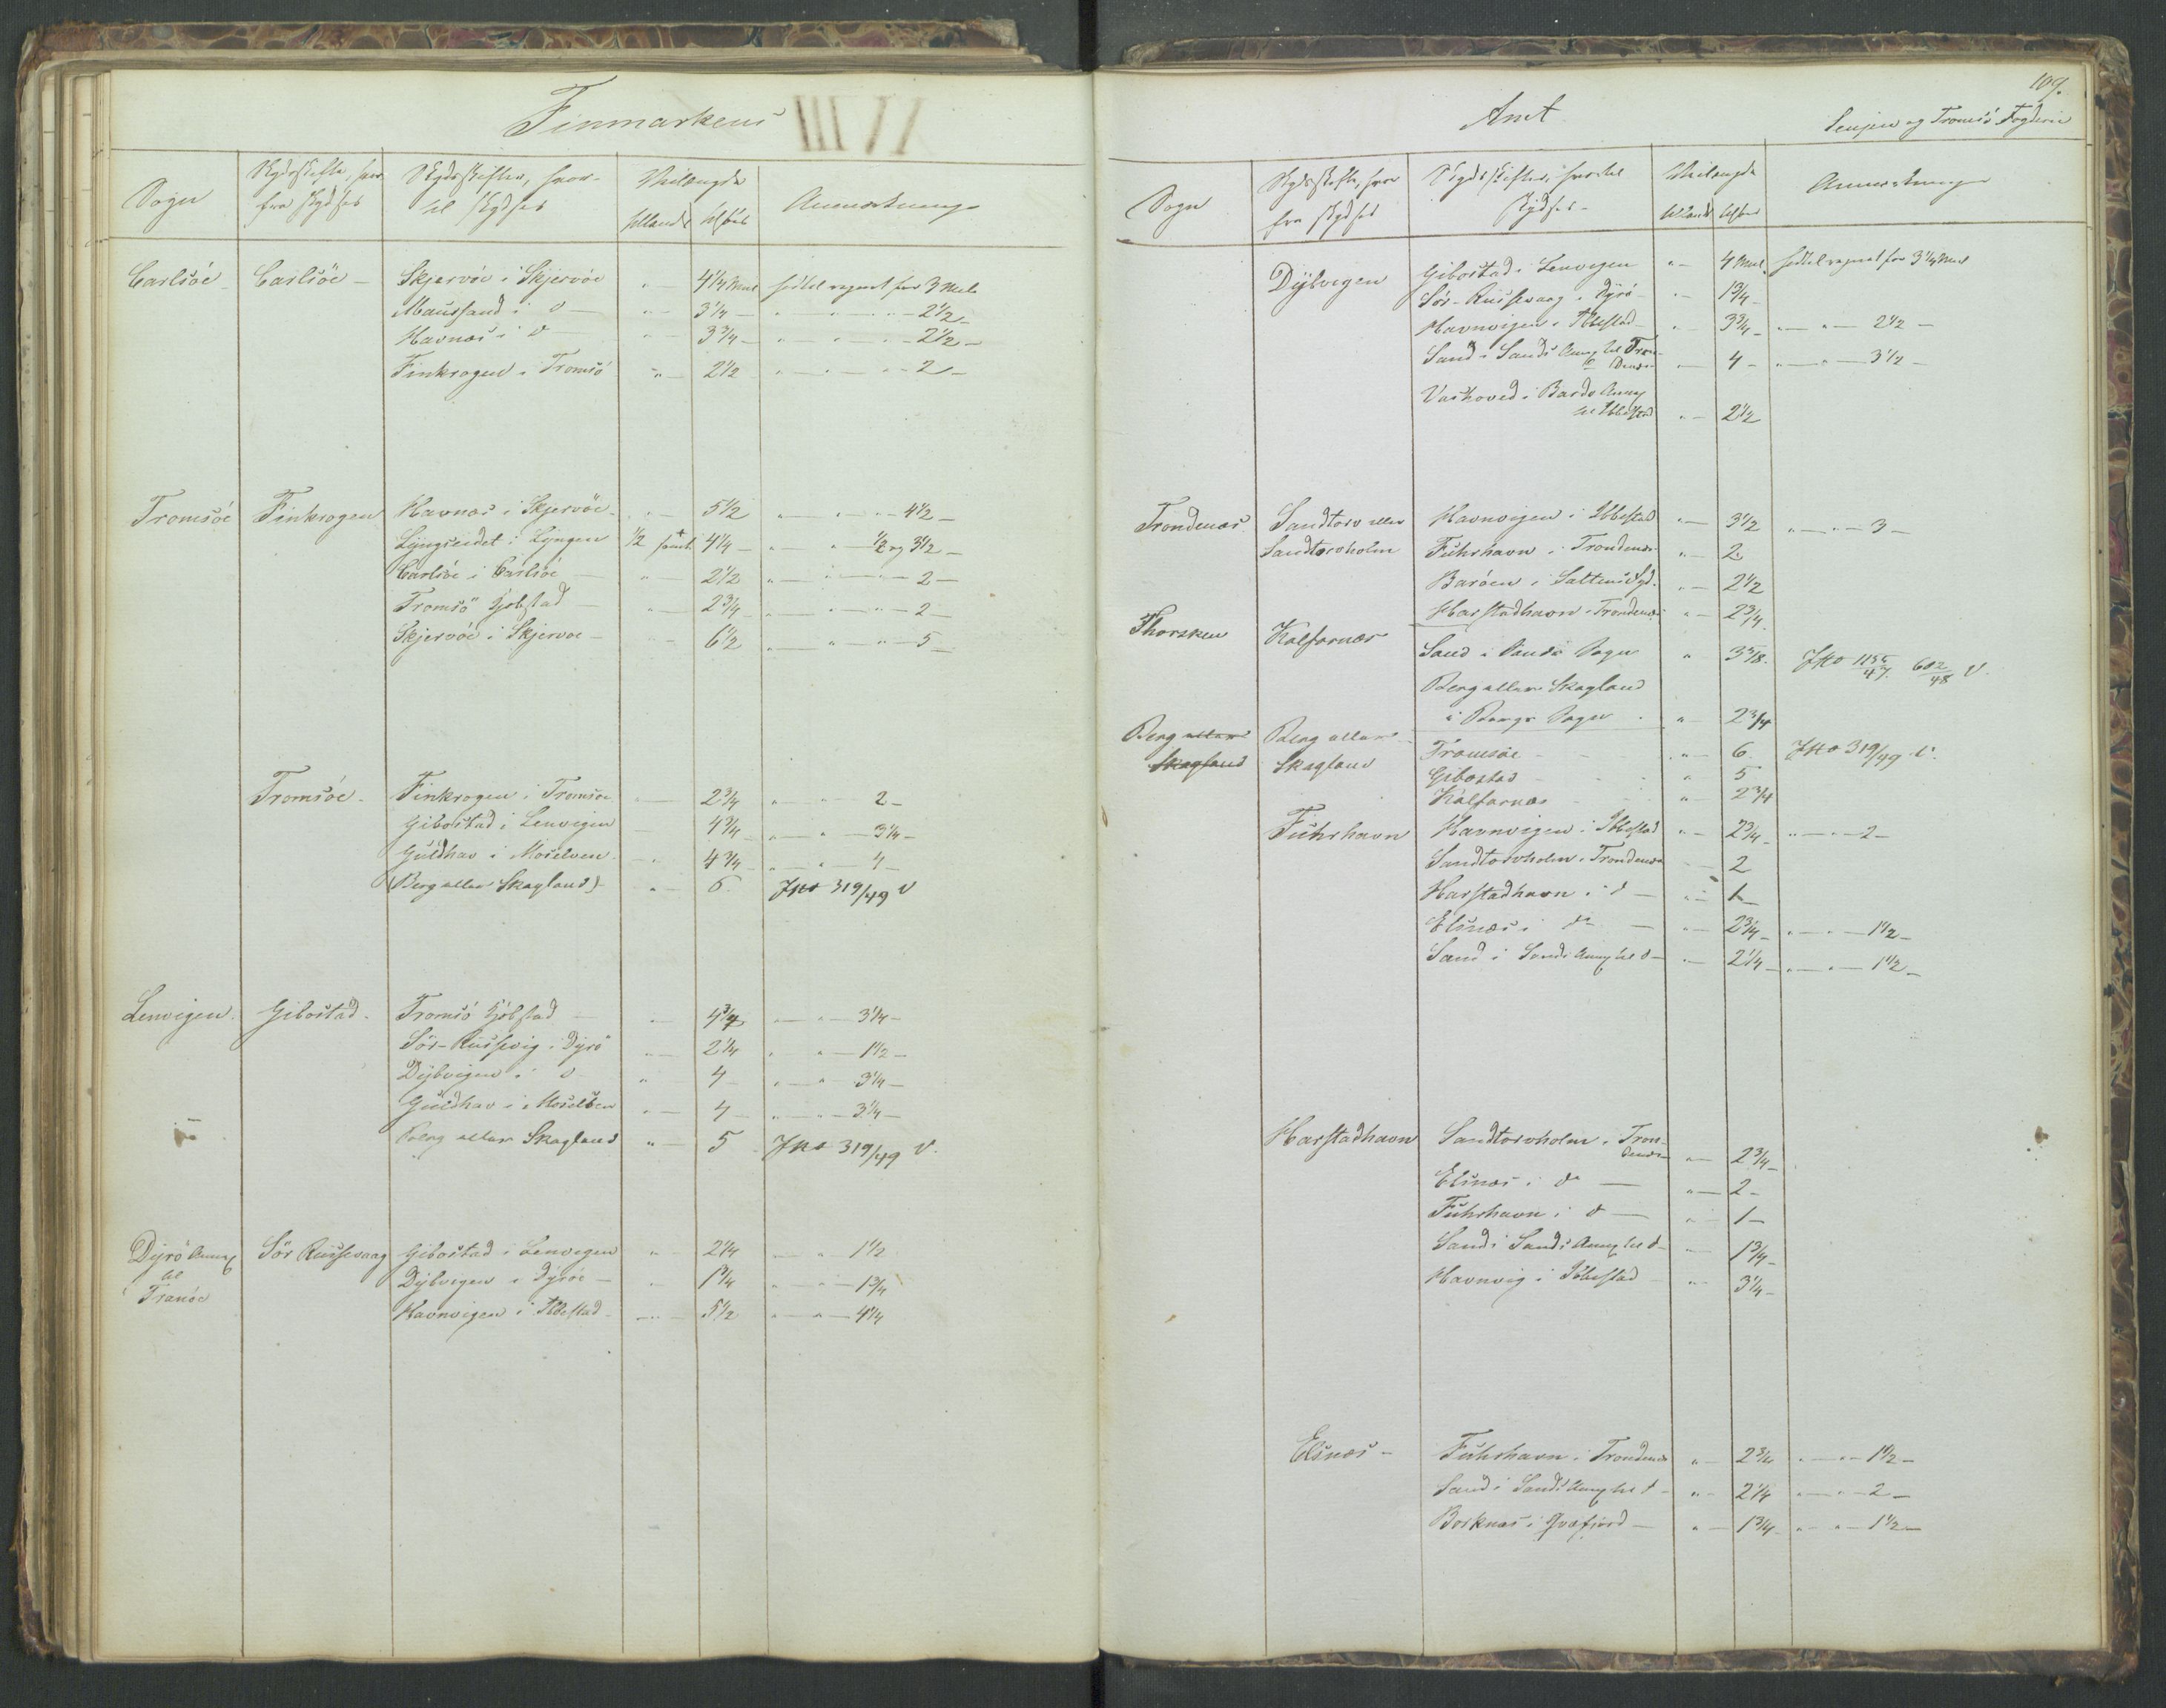 Finmarkens
Sogn | Skydsskifte, hvor fra skydses | Skydsskifter, hvor til skydses | Miilængde tillands | tilsøes | Anmærkninger
Carlsöe | Carlsöe – | Skjervöe i Skjervöe | " – | 4 1/4 Miil | hidtil regnet for 3 Mile
Maursund i do – | " – | 3 1/4 – | " " " – 2 1/2 –
Havnæs i do – | " – | 3 3/4 – | " " " – 2 1/2 –
Finkrogen i Tromsö | " – | 2 1/2 | " – " – " – 2 –
Tromsöe | Finkrogen | Havnæs i Skjervöe | " – | 5 1/2 | " " " – 4 1/2 –
Lyngseidet i Lyngen | 1/2 samt | 4 1/4 – | " – " – 1/2 og 3 1/2 –
Carlsöe i Carlsöe – | " – | 2 1/2 | " – " – " – 2 –
Tromsö Kjöbstad – | " – | 2 3/4 – | " – " – " – 2 –
Skjervöe i Skjervöe – | " – | 6 1/2 | " – " – " – 5 –
Tromsöe – | Finkrogen i Tromsöe | – | 2 3/4 | " – " – 2 –
Gibostad i Lenvigen | – | 4 3/4 – | " – " – 3 1/4 –
Guldhav i Moselven | " – | 4 3/4 | " – " – 4 –
(Berg eller Skagland) – | " – | 6. | JNo 319/49 V
Lenvigen. | Gibostad. | Tromsö Kjöbstad – | " – | 4 3/4 | " – " – 3 1/4 –
Sör-Russevig i Dyrö | " – | 2 1/4 | " " – 1 1/2 –
Dybvigen i do | " | 4 – | " – " – 3 1/4 –
Guldhav i Moselven | " – | 4 – | " – " – 3 1/4 –
Berg eller Skagland | " – | 5 – | JNo 319/49 V.
Dyrö Annex til Tranöe | Sör Russevaag | Gibostad i Lenvigen | " | 2 1/4 | " – " 1 1/2
Dybvigen i Dyröe – | " | 1 3/4 | " – " – 1 3/4
Havnvigen i Ibbestad – | – " – | 5 1/2 | " – " – 4 1/4
Amt
107.
Senjen og Tromsö Fogderie
Sogn | Skydsskifte, hvor fra skydses | Skydsskifter, hvortil skydses – | Miilængde tillands | tilsøes | Anmærkninger
Dybvigen | Gibostad i Lenvigen | " – | 4 Miil. | hidtil regnet for 3 1/4 Miil
Sör-Russevaag i Dyrö – | " – | 1 3/4 –
Havnvigen i Ibbestad – | " – | 3 3/4 – | " – " – 2 1/2 –
Sand i Sands Annex til Trondenæs | – | 4 – | " – " – 3 1/2 –
Vashoved i Bardo Annex
til Ibbestad | " – | 2 1/2
Trondenæs | Sandtorv eller | Havnvigen i Ibbestad | " – | 3 1/2 | " – " – 3 –
Sandtorvholm | Fuhrhavn i Trondenæs | " – | 2.
Baröen i Saltens Fgd. | " – | 2 1/2
Harstadhavn i Trondenæs | " – | 2 3/4.
Thorsken | Kalfarnæs | Sand i Sands Sogn | " | 3 3/8. | JNo 1135/47. 682/48 V.
Berg eller Skagland
i Bergs Sogn . | " – | 2 3/4
Berg eller | Berg eller – | Tromsöe – | " – | 6. | JNo 319/49 V.
Skagland | Skagland | Gibostad – | " | 5
Kalfarnæs – | " – | 2 3/4
Fuhrhavn | Havnvigen i Ibbestad | " – | 2 3/4 – | " – " – 2 –
Sandtorvholm i Trondenæs | – | 2
Harstadhavn i do – | " – | 1 –
Elsnæs i do – | " – | 2 3/4 – | " – " – 1 1/2 –
Sand i Sands Annex til do – | " – | 2 1/4 – | " – " – 1 1/2 –
Harstadhavn | Sandtorvholm i Trondenæs | " – | 2 3/4 –
Elsnæs i do – | " – | 2 –
Fuhrhavn i do – | " – | 1 –
Sand i Sands Annex til do – | " – | 1 3/4 –
Havnvig i Ibbestad – | " – | 3 1/4 –
Elsnæs – | Fuhrhavn i Trondenæs | " – | 2 3/4 | " – " – 1 1/2 –
Sand i Sands Annex til do – | " – | 2 1/4 | " – " – 2 –
Borknæs i Qvæfjord – | " – | 1 3/4 – | " – " – 1 1/2 –